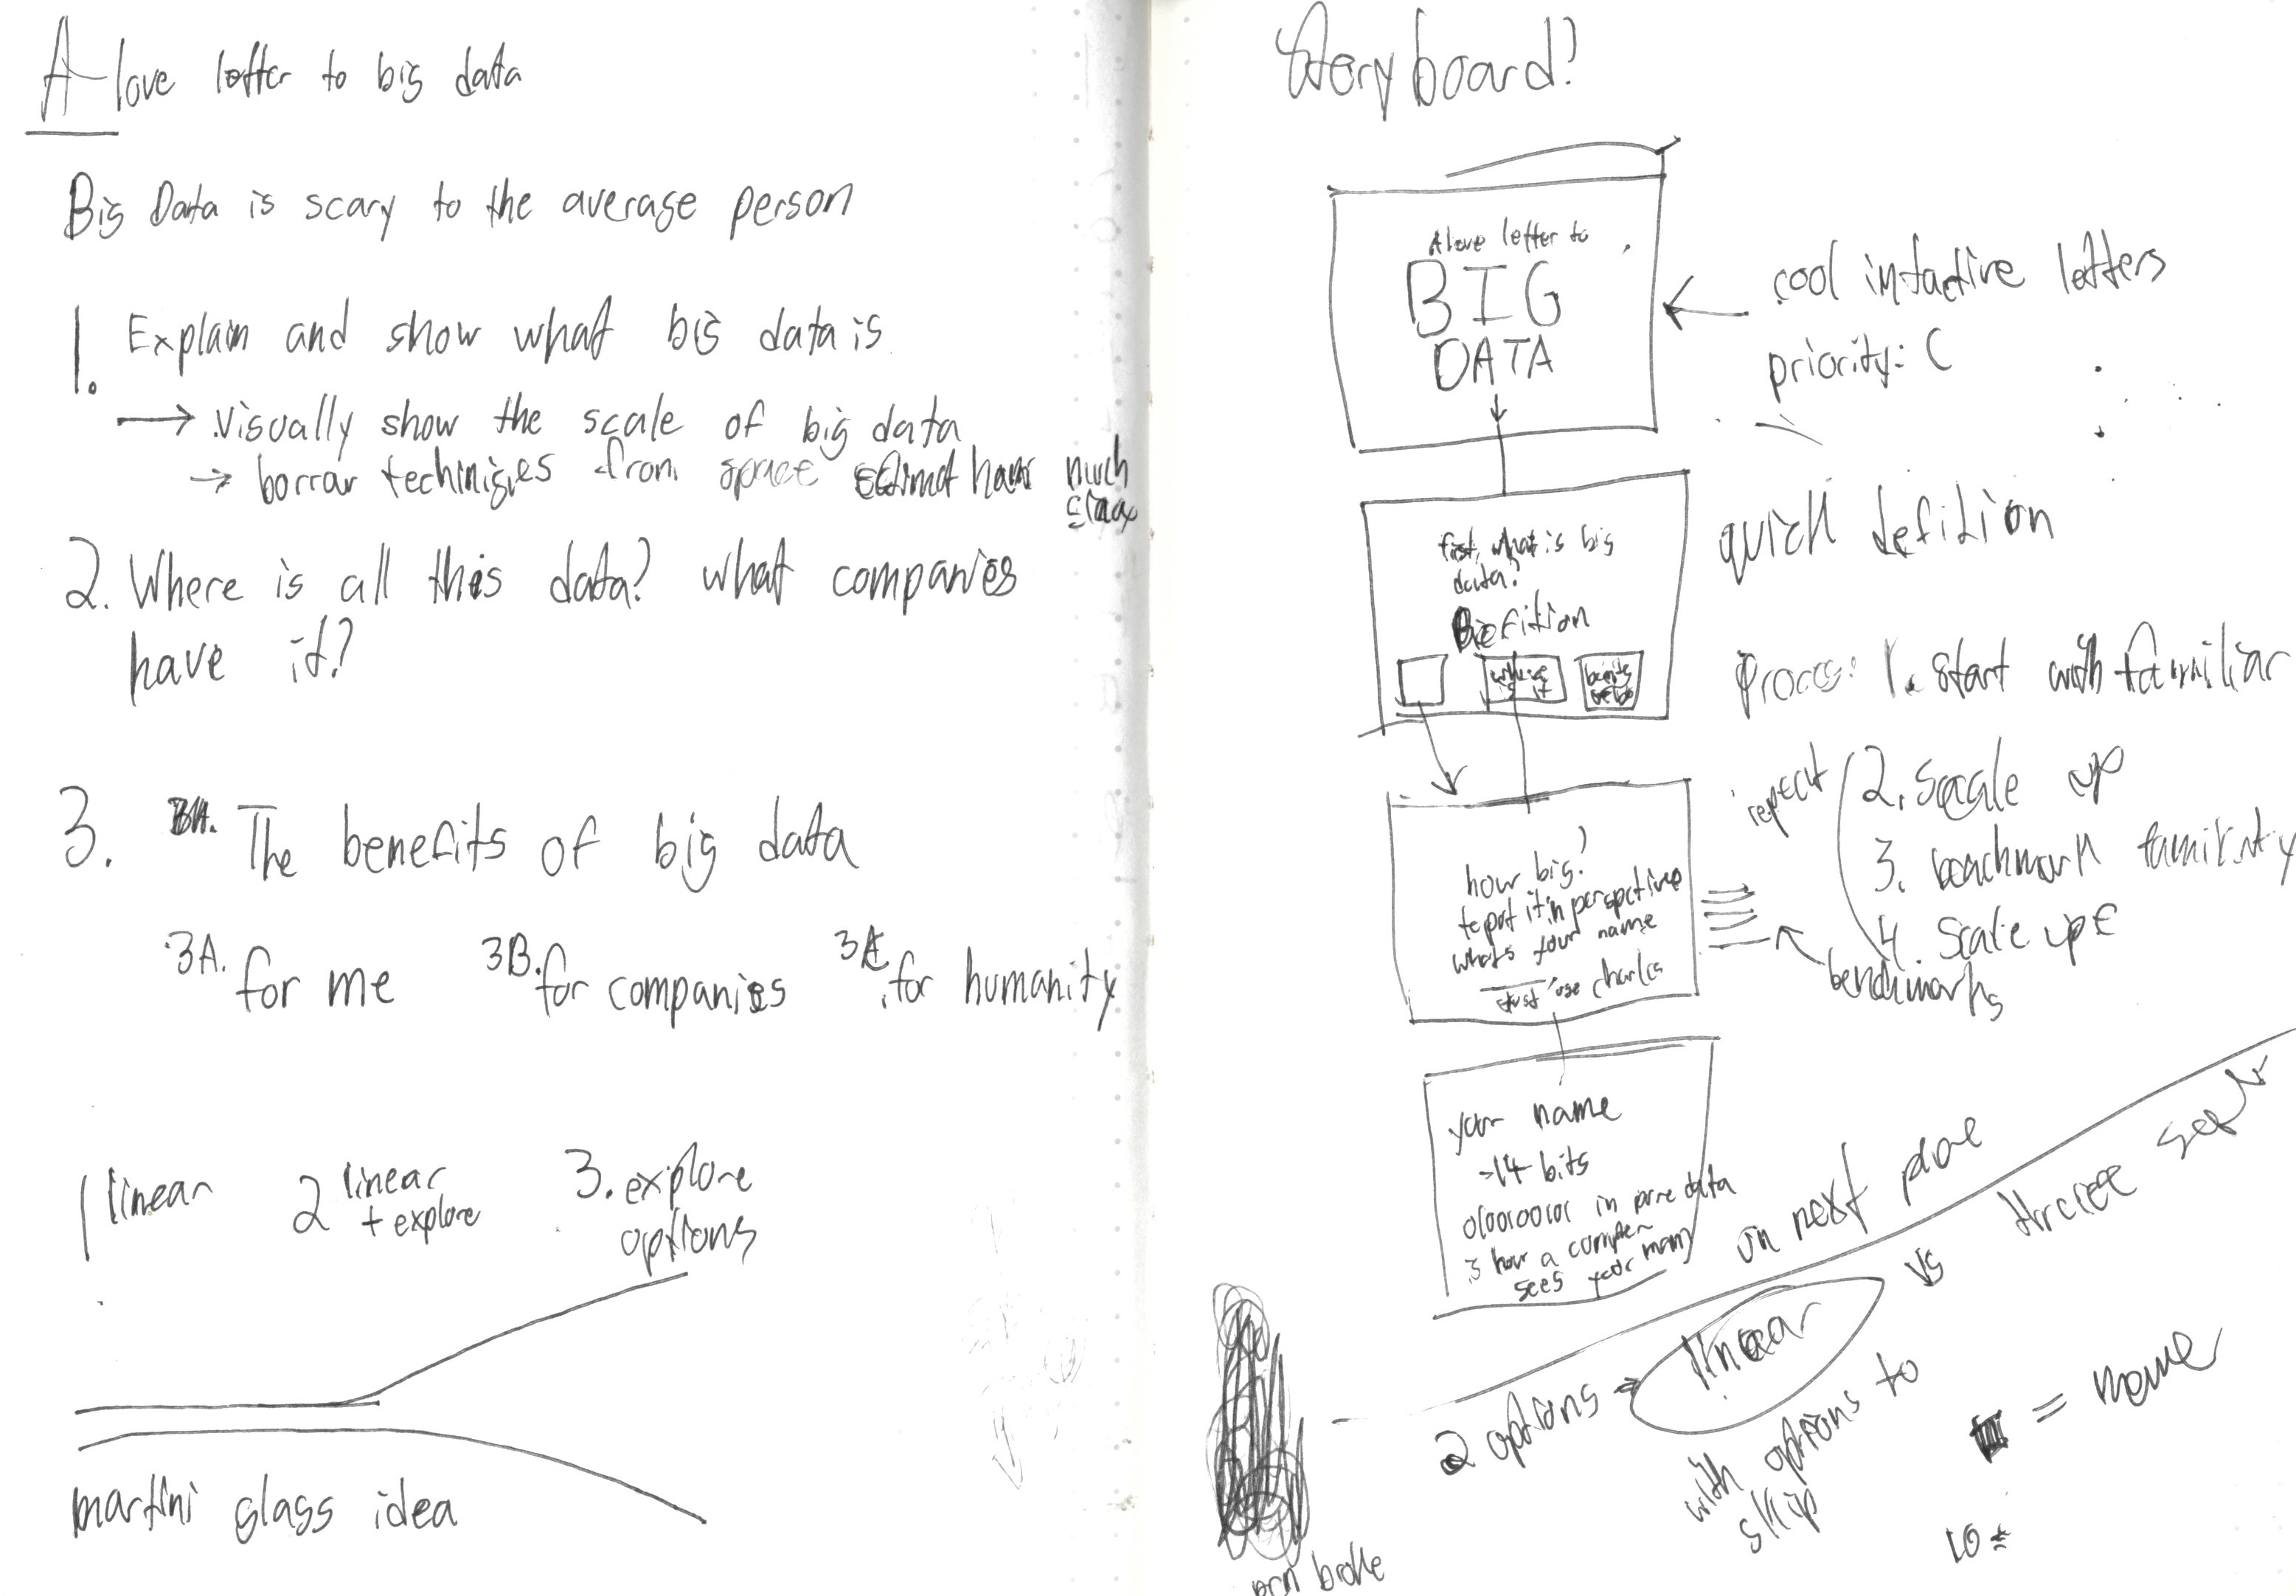 A love letter to big data
Big Data is scary to the average person
1. Explain and show what big data is
→ visually show the scale of big data
→ from space much
2. Where is all this data? what companies
have it?
3. The benefits of big data
3A. for me 3B. for companies 3C. for humanity
1 linear 2 linear + explore 3. explore options
martini glass idea
Storyboard?
A love letter to
BIG
DATA
cool intactive letters
priority: C
first, what is big
data?
Defition
where is it
quick defition
process: 1. start with familiar
repeat
2. Scale up
3. benchmark
4. Scale up
benchmarks
how big?
to put it in perspective
whats your name
just use charles
your name
14 bits
in pure data
how a computer
sees your
on next
2 options → linear vs
with options to
skip
= name
10 =
pen broke